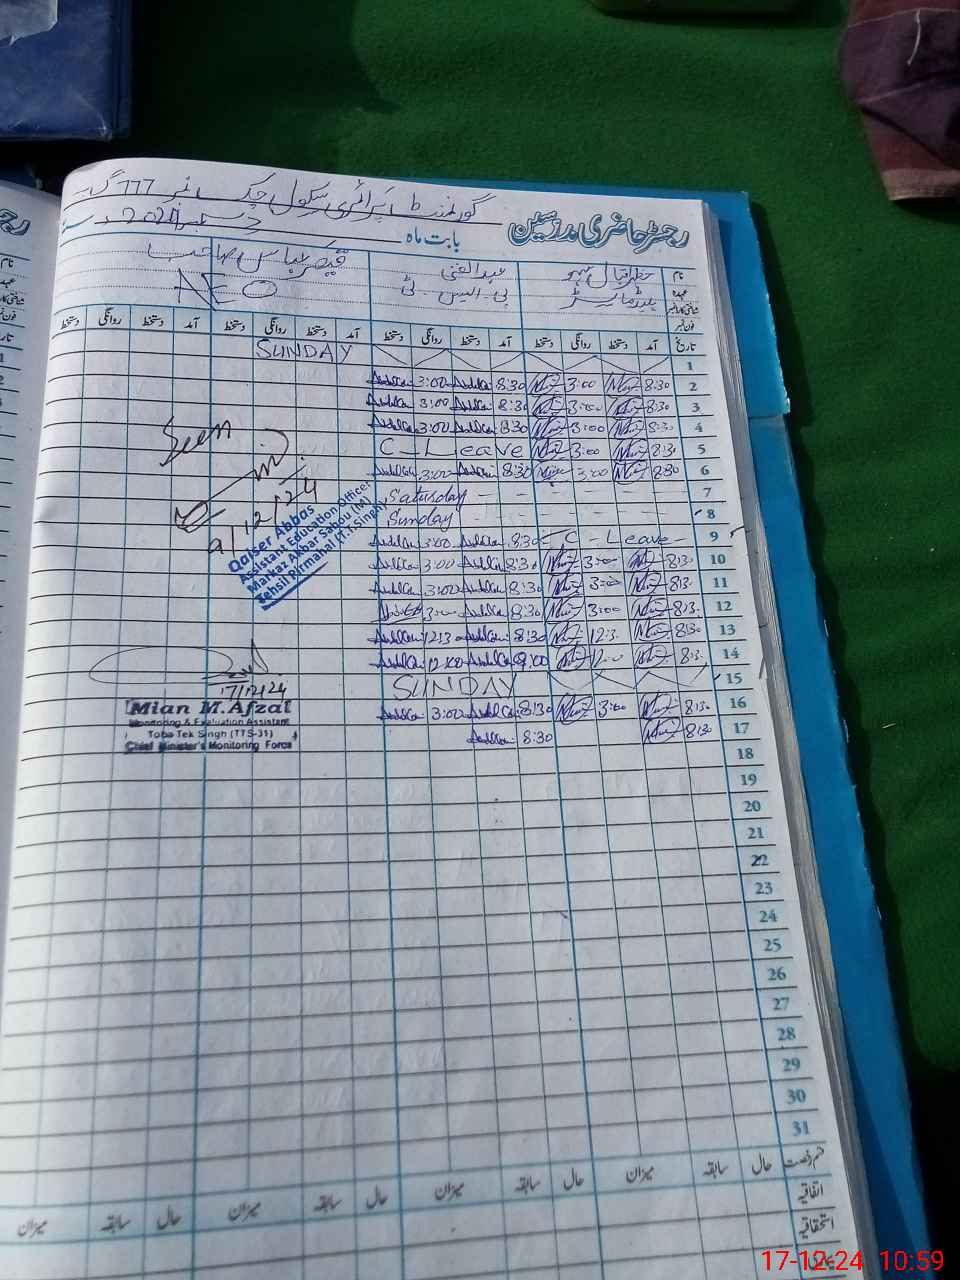 رجسٹر حاضری مدرسین گورنمنٹ پرائمری سکول چک نمبر 777 گ ب
بابت ماہ دسمبر 2024
نام ظفر اقبال عبدالغنی قیصر عباس صاحب
عہدہ ہیڈ ماسٹر پی۔ایس۔ٹی AEO
تاریخ آمد دستخط روانگی دستخط آمد دستخط روانگی دستخط آمد دستخط روانگی دستخط آمد دستخط روانگی دستخط
1 SUNDAY
2 8:30 3:00 8:30 3:00
3 8:30 3:00 8:30 3:00
4 8:30 3:00 8:30 3:00
5 8:30 3:00 C - Leave
6 8:30 3:00 8:30 3:00
7 Saturday
8 Sunday
9 C - Leave - 8:30 3:00
10 8:30 3:00 8:30 3:00
11 8:30 3:00 8:30 3:00
12 8:30 3:00 8:30 3:00
13 8:30 12:30 8:30 12:30
14 8:30 12:00 9:00 12:00
15 SUNDAY
16 8:30 3:00 8:30 3:00
17 8:30 8:30
18
19
20
21
22
23
24
25
26
27
28
29
30
31
Seen
9/12/24
Qaiser Abbas
Assistant Education Officer
Markaz Akbar Sabou (M)
Tehsil Pirmahal (T.T.Singh)
17/12/24
Mian M. Afzal
Monitoring & Evaluation Assistant
Toba Tek Singh (TTS-31)
Chief Minister's Monitoring Force
قسم رخصت حال سابقہ میزان حال سابقہ میزان حال سابقہ میزان حال سابقہ میزان
اتفاقیہ
استحقاقیہ
17-12-24 10:59